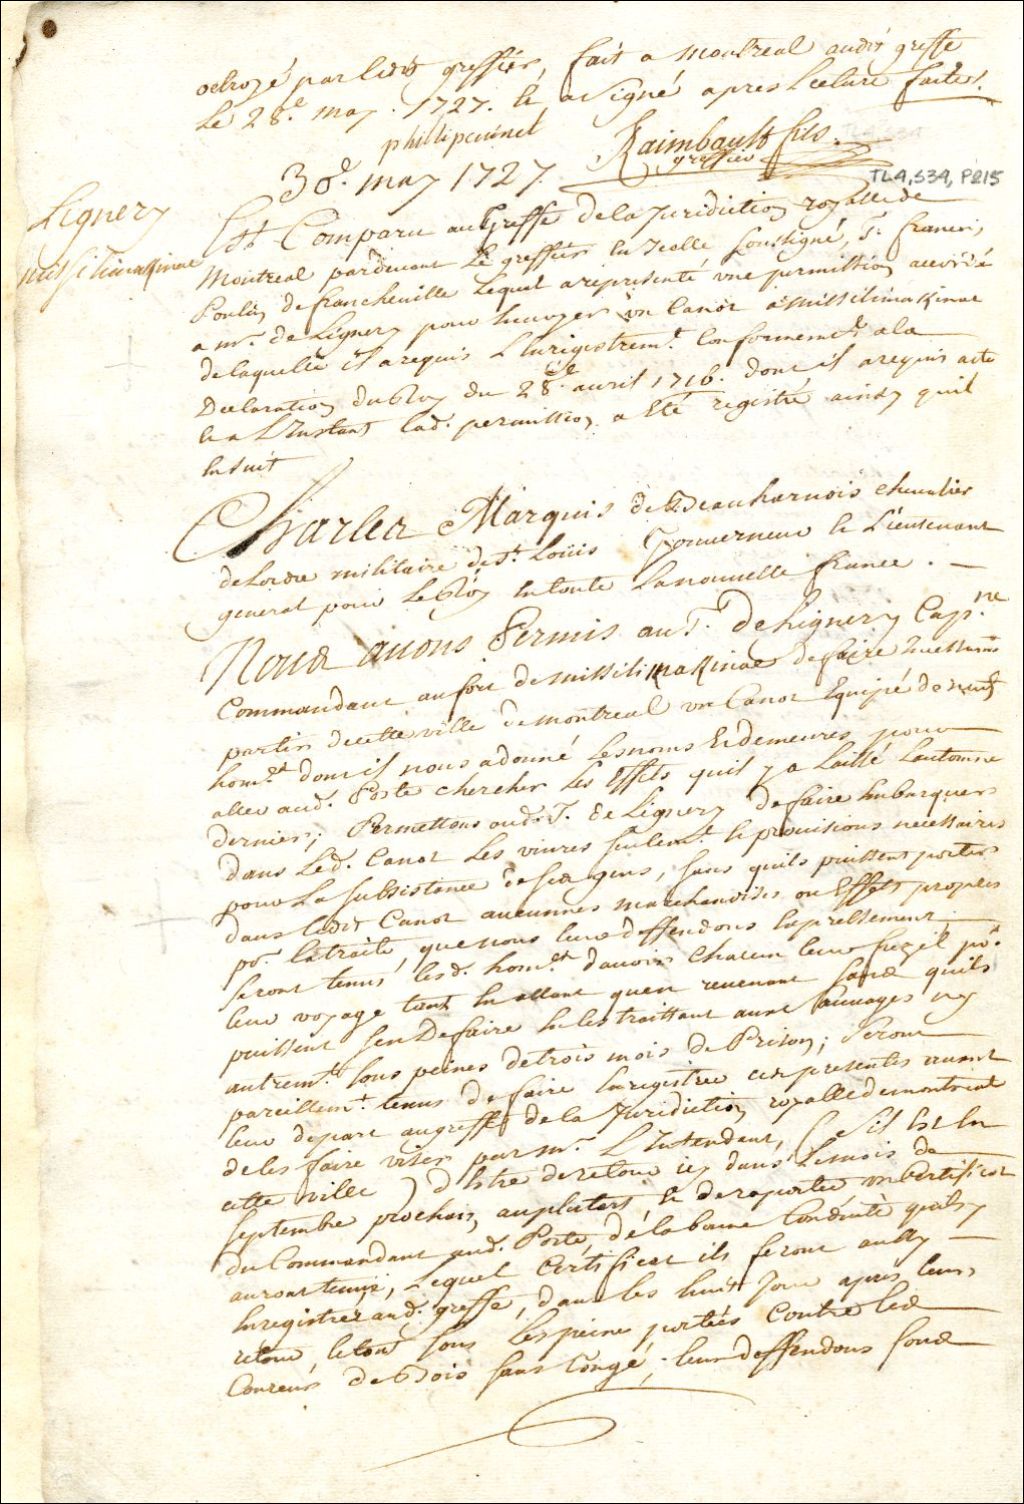 octroyé par ledit greffier, fait a Montreal audit greffe
le 28e. may. 1727. et a signé apres lecture faitte.
philipeuinet
Raimbault fils
greffier
30e. may 1727.
TL4, S34, P215
Lignery
missilimakinac
Est Comparu au Greffe de la Juridiction royalle de
Montreal pardevant Le greffier en Icelle soussigné, Sr. francois,
Poulin de francheville Lequel a representé une permission accordé
a mr. de Lignery pour envoyer un Canot a missilimakinac
de laquelle il a requis L'enregistremt. Conformemt. a la
Declaration du Roy du 28e. avril 1716. dont il a requis acte
et a L'Instant lad. permission a eté registré ainsy quil
ensuit
Charles Marquis de Beauharnois chevalier
de Lordre militaire de St. Loüis Gouverneur et Lieutenant
general pour Le Roy en toute La nouvelle france. —
Nous avons Permis au Sr. De Lignery Capne
Commandant au fort de missilimakinac de faire
partir de cette ville de montreal un Canot Equipé de neuf
homes. dont il nous a donné Les noms Et demeures pour
aller aud. Poste chercher Les Effets quil y a Laissé Lautomne
dernier; Permettons aud. Sr. de Lignery de faire Embarquer
dans Led. Canot Les vivres seulemt. et provisions necessaires
pour La subsistance de ses gens, sans quils puissent porter
dans ledit Canot aucunnes marchandises ou Effets propres
pr. la traite, que nous leur deffendons Expressement
seront tenus lesd. homes. d'avoir Chacun leur fuzil pr.
leur voyage tant en allant quen revenant sans quils
puissent sen Defaire en les traittant aux sauvages ny
autremt. sous peines de trois mois de Prison; seront
pareillemt. tenus de faire Enregistrer ces presentes avant
leur depart au greffe de la Juridiction royalle de montreal
de les faire viser par mr. L'Intendant, (sil Est en
cette ville) d'Estre de retour icy dans Le mois de
septembre prochain, au plutard, et de raporter un Certificat
du Commandant aud. Poste, de la bonne Conduite quils y
auront tenüe, Lequel Certificat ils feront aussy —
Enregistrer aud. greffe, dans les huit Jours apres leur,
retour, le tout sous les peines portées Contre les
Coureurs de Bois sans Congé; leur deffendons sous